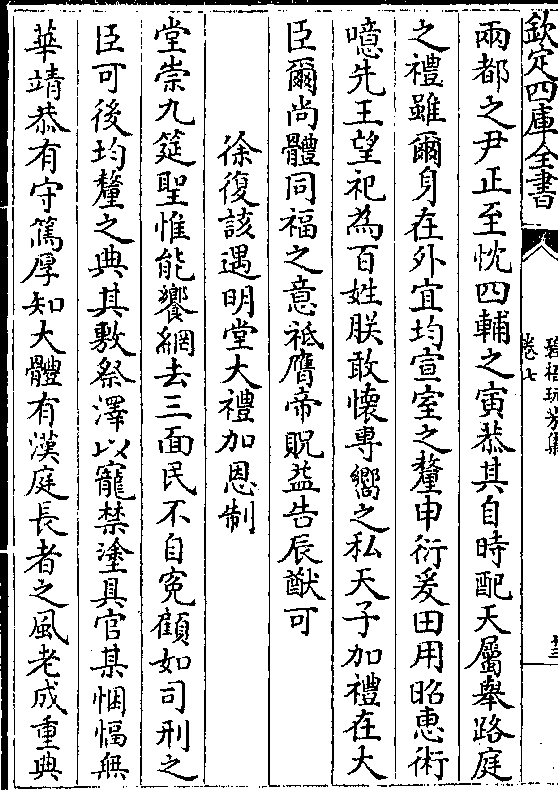 欽定四庫全書
卷七
兩都之尹正至忱四輔之寅恭其自時配天屬舉路庭
之禮雖爾身在外宜均宣室之釐申衍爰田用昭惠術
噫先王望祀為百姓朕敢懷專嚮之私天子加禮在大
臣爾尚體同福之意祗膺帝貺益告辰猷可
徐復該遇明堂大禮加恩制
堂崇九筵聖惟能饗網去三面民不自寃顧如司刑之
臣可後均釐之典其敷祭澤以寵禁塗具官某悃愊無
華靖恭有守篤厚知大體有漢庭長者之風老成重典